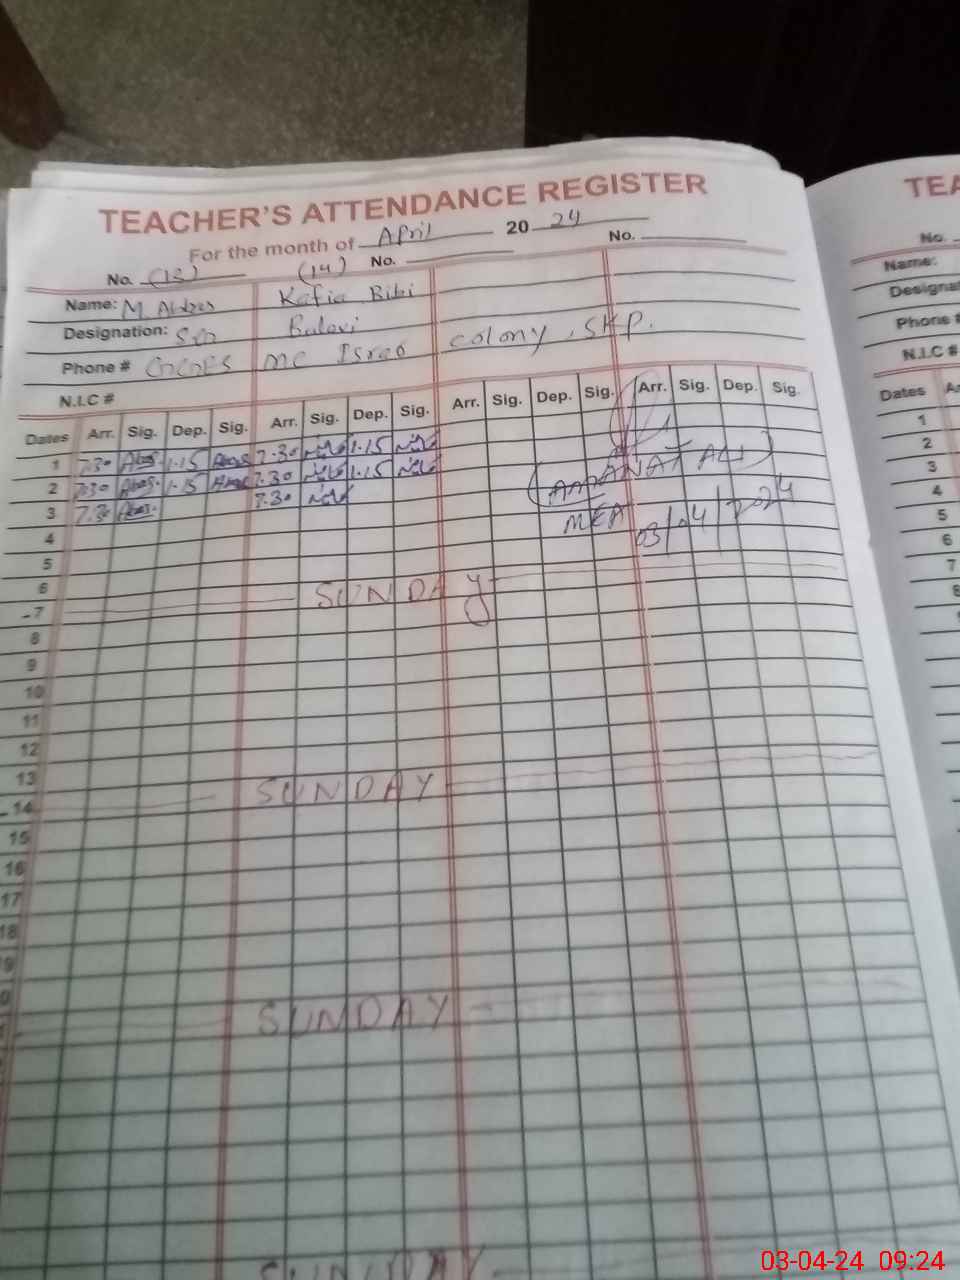 TEACHER'S ATTENDANCE REGISTER
For the month of April 20 24
No. (13) (14) No. No.
Name: M. Kafia Bibi
Designation: Bulavi
Phone # GGCMES MC Israo colony, SKP.
N.I.C #
Dates Arr. Sig. Dep. Sig. Arr. Sig. Dep. Sig. Arr. Sig. Dep. Sig. Arr. Sig. Dep. Sig.
1 7.30 1.15 7.30 1.15
2 7.30 1.15 7.30 1.15
3 7.30 7.30
(AMANAT ALI)
4
MEA 03/04/2024
5
6
7 SUNDAY
8
9
10
11
12
13
14 SUNDAY
15
16
17
18
9
0
SUNDAY
SUNDAY
TEA
No.
Name:
Designat
Phone #
N.I.C #
Dates A
1
2
3
4
5
6
7
8
03-04-24 09:24